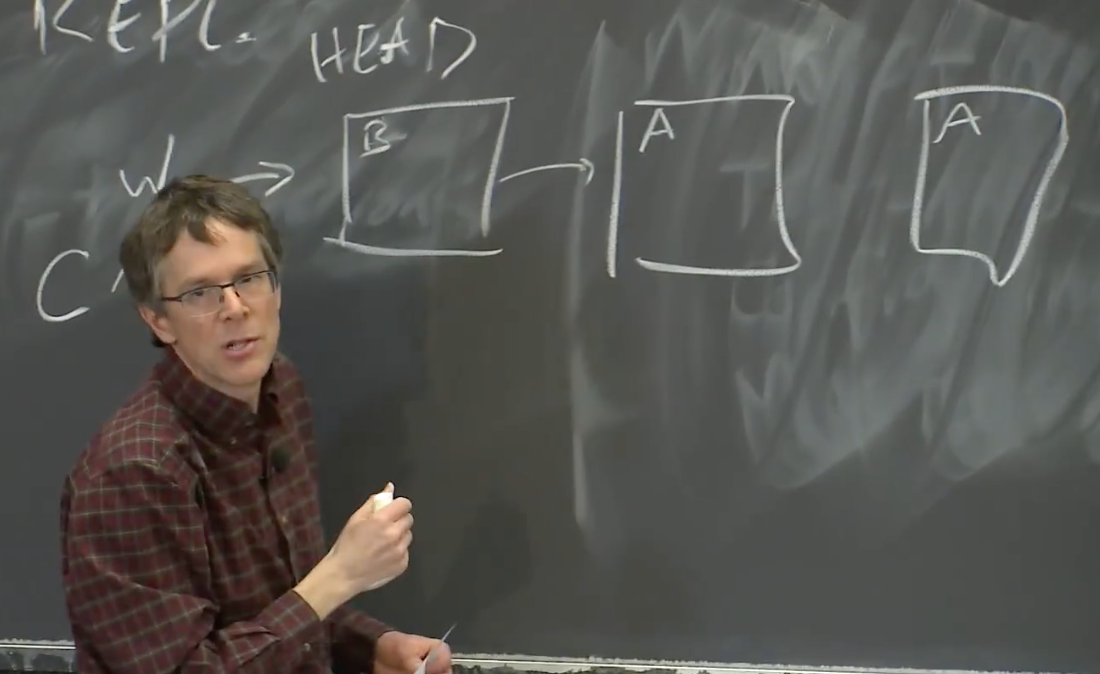 REPL.
HEAD
B A A
W
C